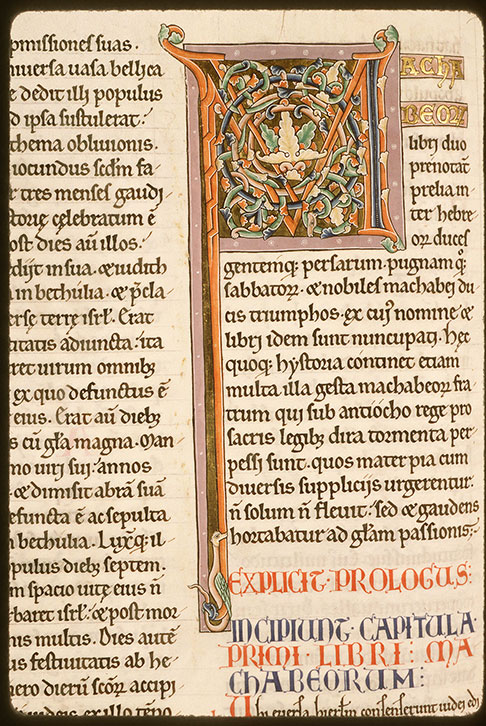 pmissiones suas.
niuersa uasa bellica
e dedit illi populus
d ipsa sustulerat.
thema obliuionis.
iocundus scdm fa
r tres menses gaudi
storię cęlebratum ē
ost dies aū illos.
dijt in sua. & iudith
in bethulia. & p̄cla
ersę terrę isrl. Erat
titatis adiuncta. ita
ret uirum omnibꝫ
ex quo defunctus ē
eius. Erat aū diebꝫ
s cū gła magna. Man
no uiri sui. annos
& dimisit abrā suā
efuncta ē ac sepulta
n bethulia. Luxq: il
pulus diebꝫ septem.
m spacio uitę eius ñ
rbaret isrł. & post mor
nis multis. Dies autē
us festiuitatis ab he
nero dierū scōꝝ accipi
MACHA
BEOꝜ
libri duo
prenotāt
prelia in
ter hebre
oꝝ duces
gentemq; persarum. pugnam q̊;
sabbatoꝝ. & nobiles machabei du
cis triumphos. ex cuiꝰ nomine &
libri idem sunt nuncupati. Hęc
quoq; hystoria continet etiam
multa illa gesta machabeoꝝ fra
trum qui sub antiocho rege pro
sacris legibꝫ dira tormenta per
pessi sunt. quos mater pia cum
diuersis supplicijs urgerentur.
ñ solum ñ fleuit. sed & gaudens
hortabatur ad głam passionis;
EXPLICIT. PROLOGUS:
INCIPIUNT. CAPITULA
PRIMI. LIBRI: MA
CHABEORUM:
Ubi euersa hierłm consenserunt iudei